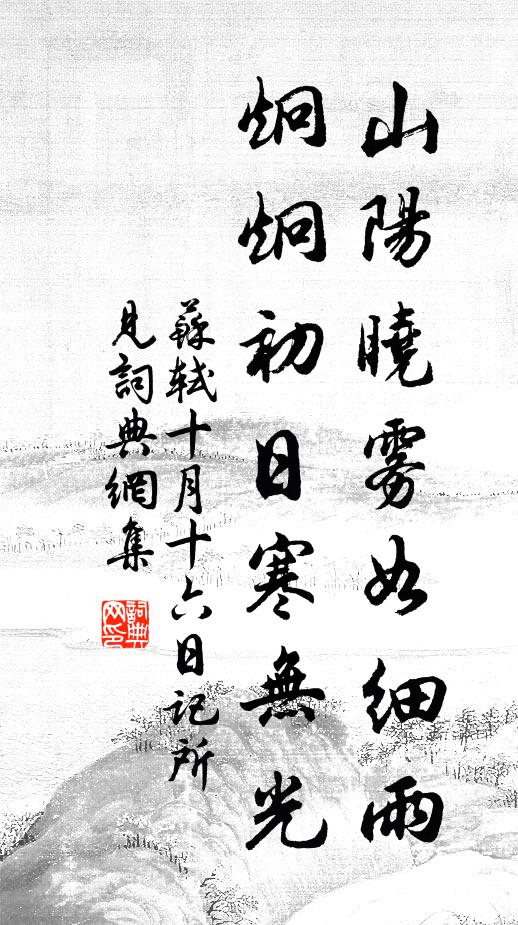 山陽曉雾如细雨
炯炯初日寒無光
蘇軾十月十六日記所
見詞典網集
詞典
网印